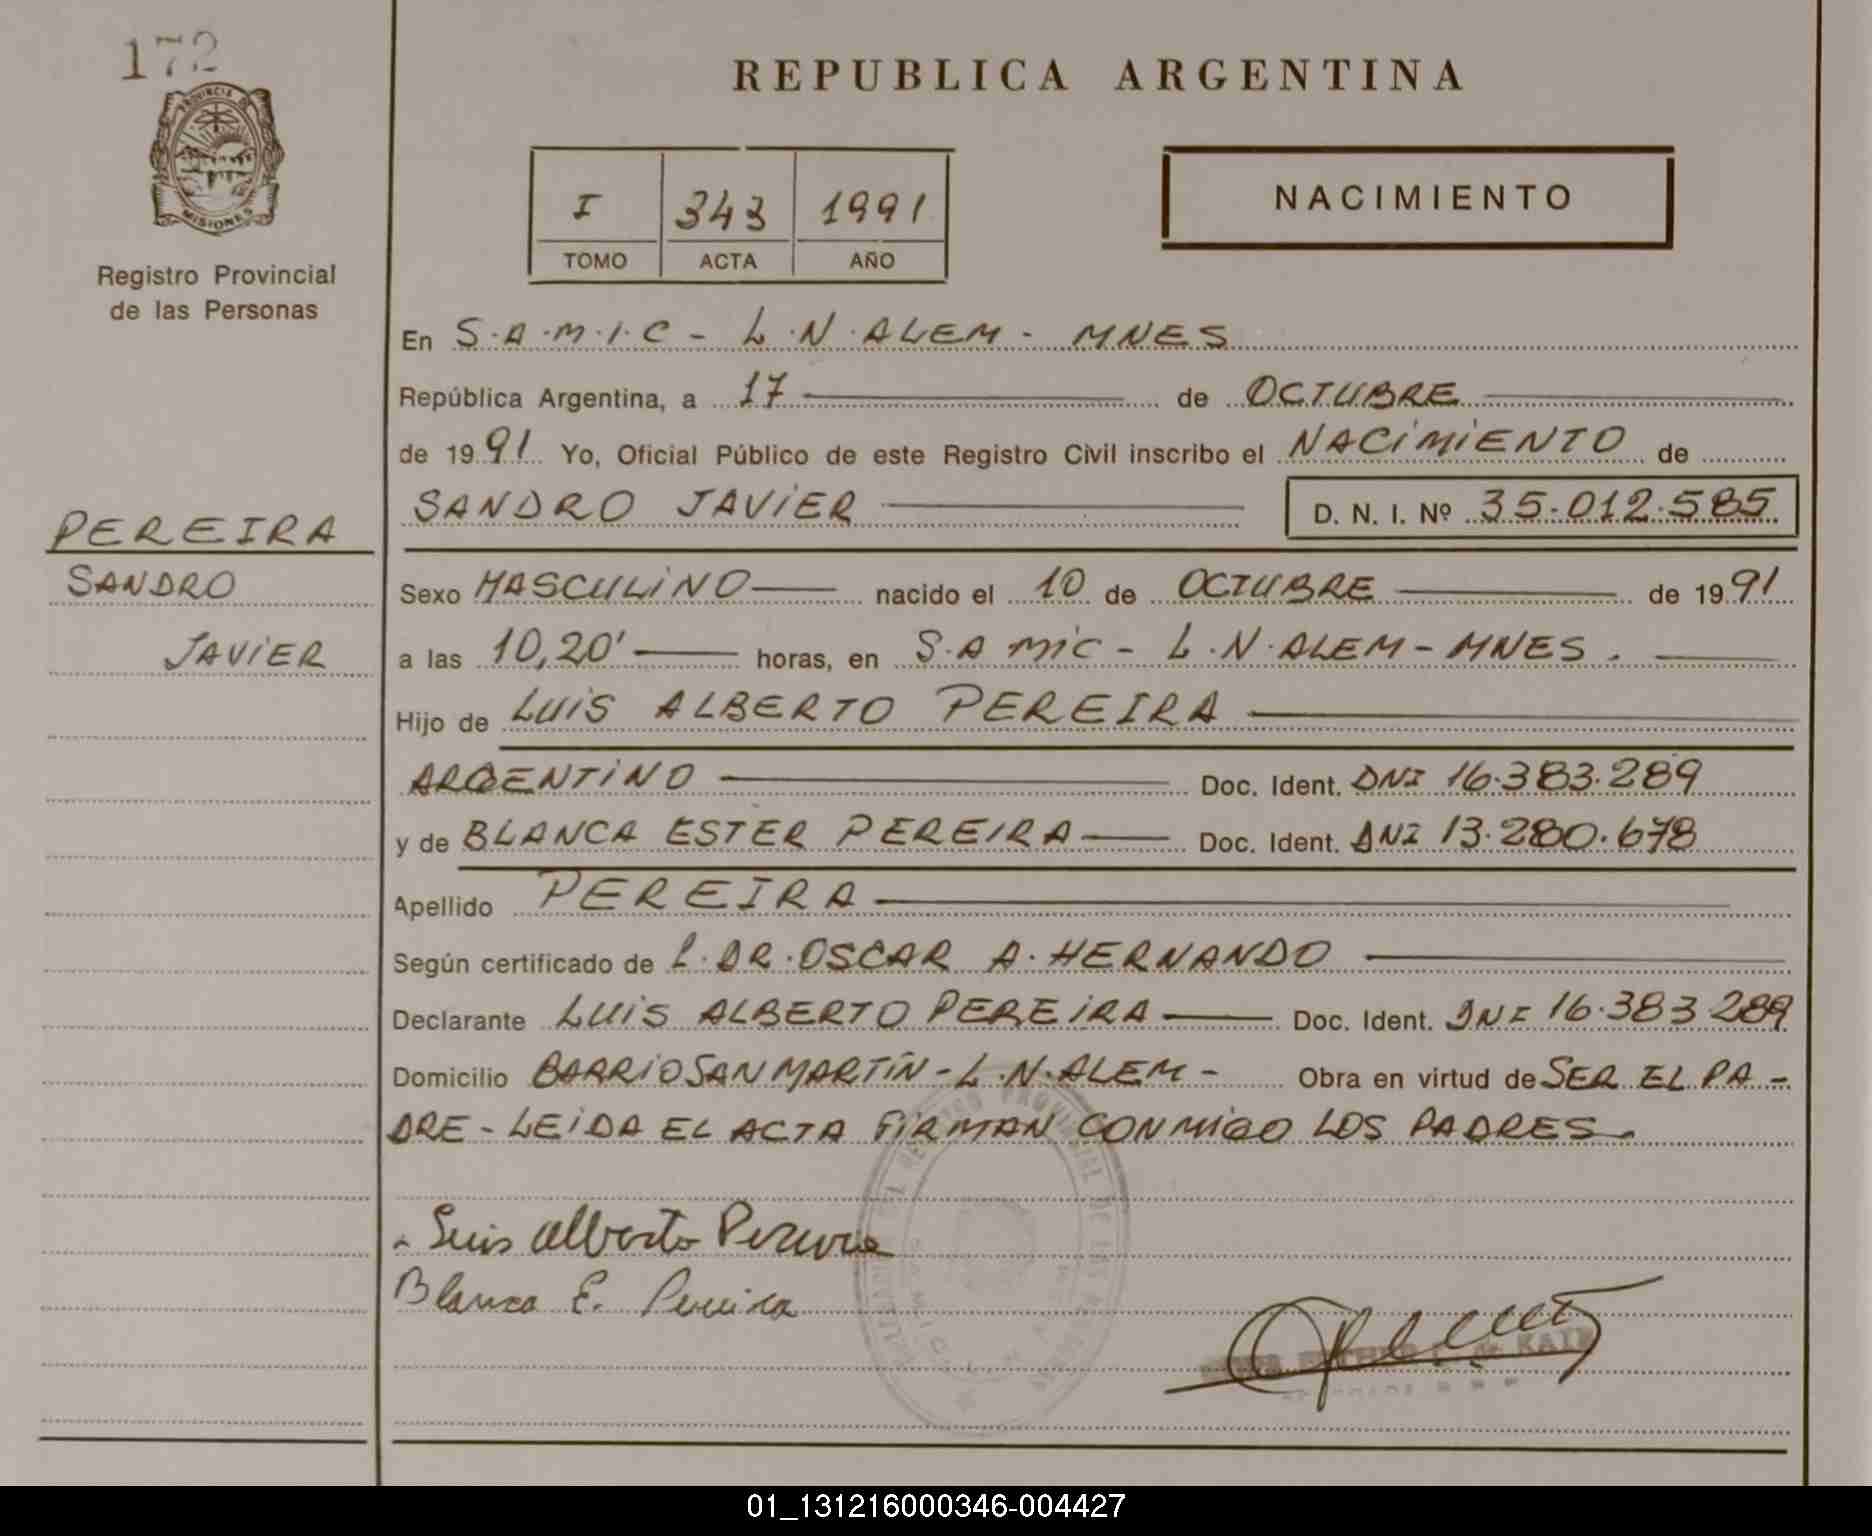 172
PROVINCIA DE
MISIONES
Registro Provincial
de las Personas
PEREIRA
SANDRO
JAVIER
REPUBLICA ARGENTINA
I 343 1991
TOMO ACTA AÑO
NACIMIENTO
En S.A.M.I.C - L.N.ALEM - MNES
República Argentina, a 17 de OCTUBRE
de 1991 Yo, Oficial Público de este Registro Civil inscribo el NACIMIENTO de
SANDRO JAVIER D. N. I. Nº 35.012.585
Sexo MASCULINO nacido el 10 de OCTUBRE de 1991
a las 10,20' horas, en S.A MIC - L.N.ALEM - MNES.
Hijo de LUIS ALBERTO PEREIRA
ARGENTINO Doc. Ident. DNI 16.383.289
y de BLANCA ESTER PEREIRA Doc. Ident. DNI 13.280.678
Apellido PEREIRA
Según certificado de DR. OSCAR A. HERNANDO
Declarante LUIS ALBERTO PEREIRA Doc. Ident. DNI 16.383 289
Domicilio BARRIO SAN MARTÍN - L.N.ALEM - Obra en virtud de SER EL PA-
DRE - LEIDA EL ACTA FIRMAN CONMIGO LOS PADRES.
Luis Alberto Pereira
Blanca E. Pereira
01_131216000346-004427